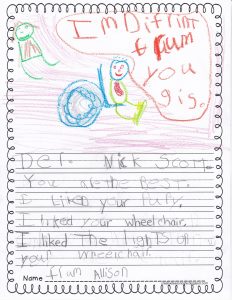 I'm Diffrint
frum
you
gis.
Der. Nick Scott.
You are the Best.
I Liked your Pury.
I liked your wheelchair.
I liked The lights on
your wheelchair.
Name fram Allison